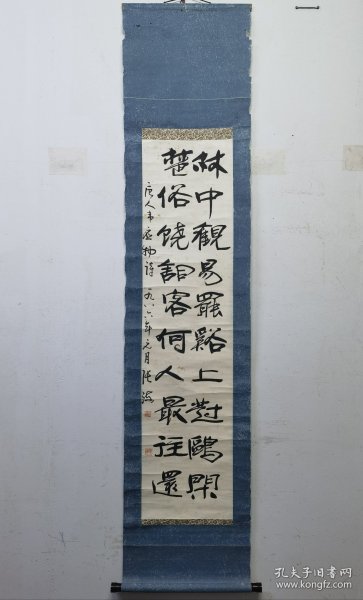 林中觀易罷谿上對鷗閒
楚俗饒詞客何人最往還
唐人韋应物詩 一九八六年元月 張海
孔夫子旧书网